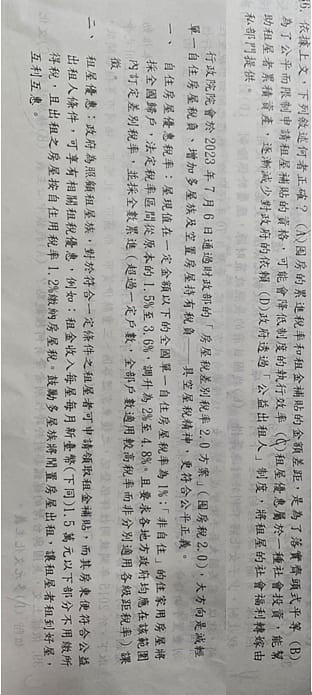 依據上文，下列敘述何者正確？(A)囤房的累進稅率和租金補貼的金額差距，是為了落實齊頭式平等 (B)
為了公平而限制申請租屋補貼的資格，可能會降低制度的執行效率 (C)租屋優惠屬於一種社會投資，能幫
助租屋者累積資產，逐漸減少對政府的依賴 (D)政府透過「公益出租人」制度，將租屋的社會福利轉嫁由
私部門提供。
行政院院會於 2023 年 7 月 6 日通過財政部的「房屋稅差別稅率 2.0 方案」(囤房稅 2.0)，大方向是減輕
單一自住房屋稅負、增加多屋族及空置房屋持有稅負——具空屋稅精神，更符合公平正義。
一、自住房屋優惠稅率：屋現值在一定金額以下的全國單一自住房屋稅率為 1%；「非自住」的住家用房屋將
採全國歸戶，法定稅率區間從原本的 1.5%至 3.6%，調升為 2%至 4.8%。且要求各地方政府均應在該範圍
內訂定差別稅率，並採全數累進（超過一定戶數，全部戶數適用較高稅率而非分別適用各級距稅率）課
徵。
二、租屋優惠：政府為照顧租屋族，對於符合一定條件之租屋者可申請領取租金補貼，而其房東便符合公益
出租人條件，可享有相關租稅優惠，例如：租金收入每屋每月新臺幣(下同)1.5 萬元以下部分不用繳所
得稅，且出租之房屋按自住用稅率 1.2%繳納房屋稅。鼓勵多屋族將閒置房屋出租，讓租屋者租到好屋，
互利互惠。